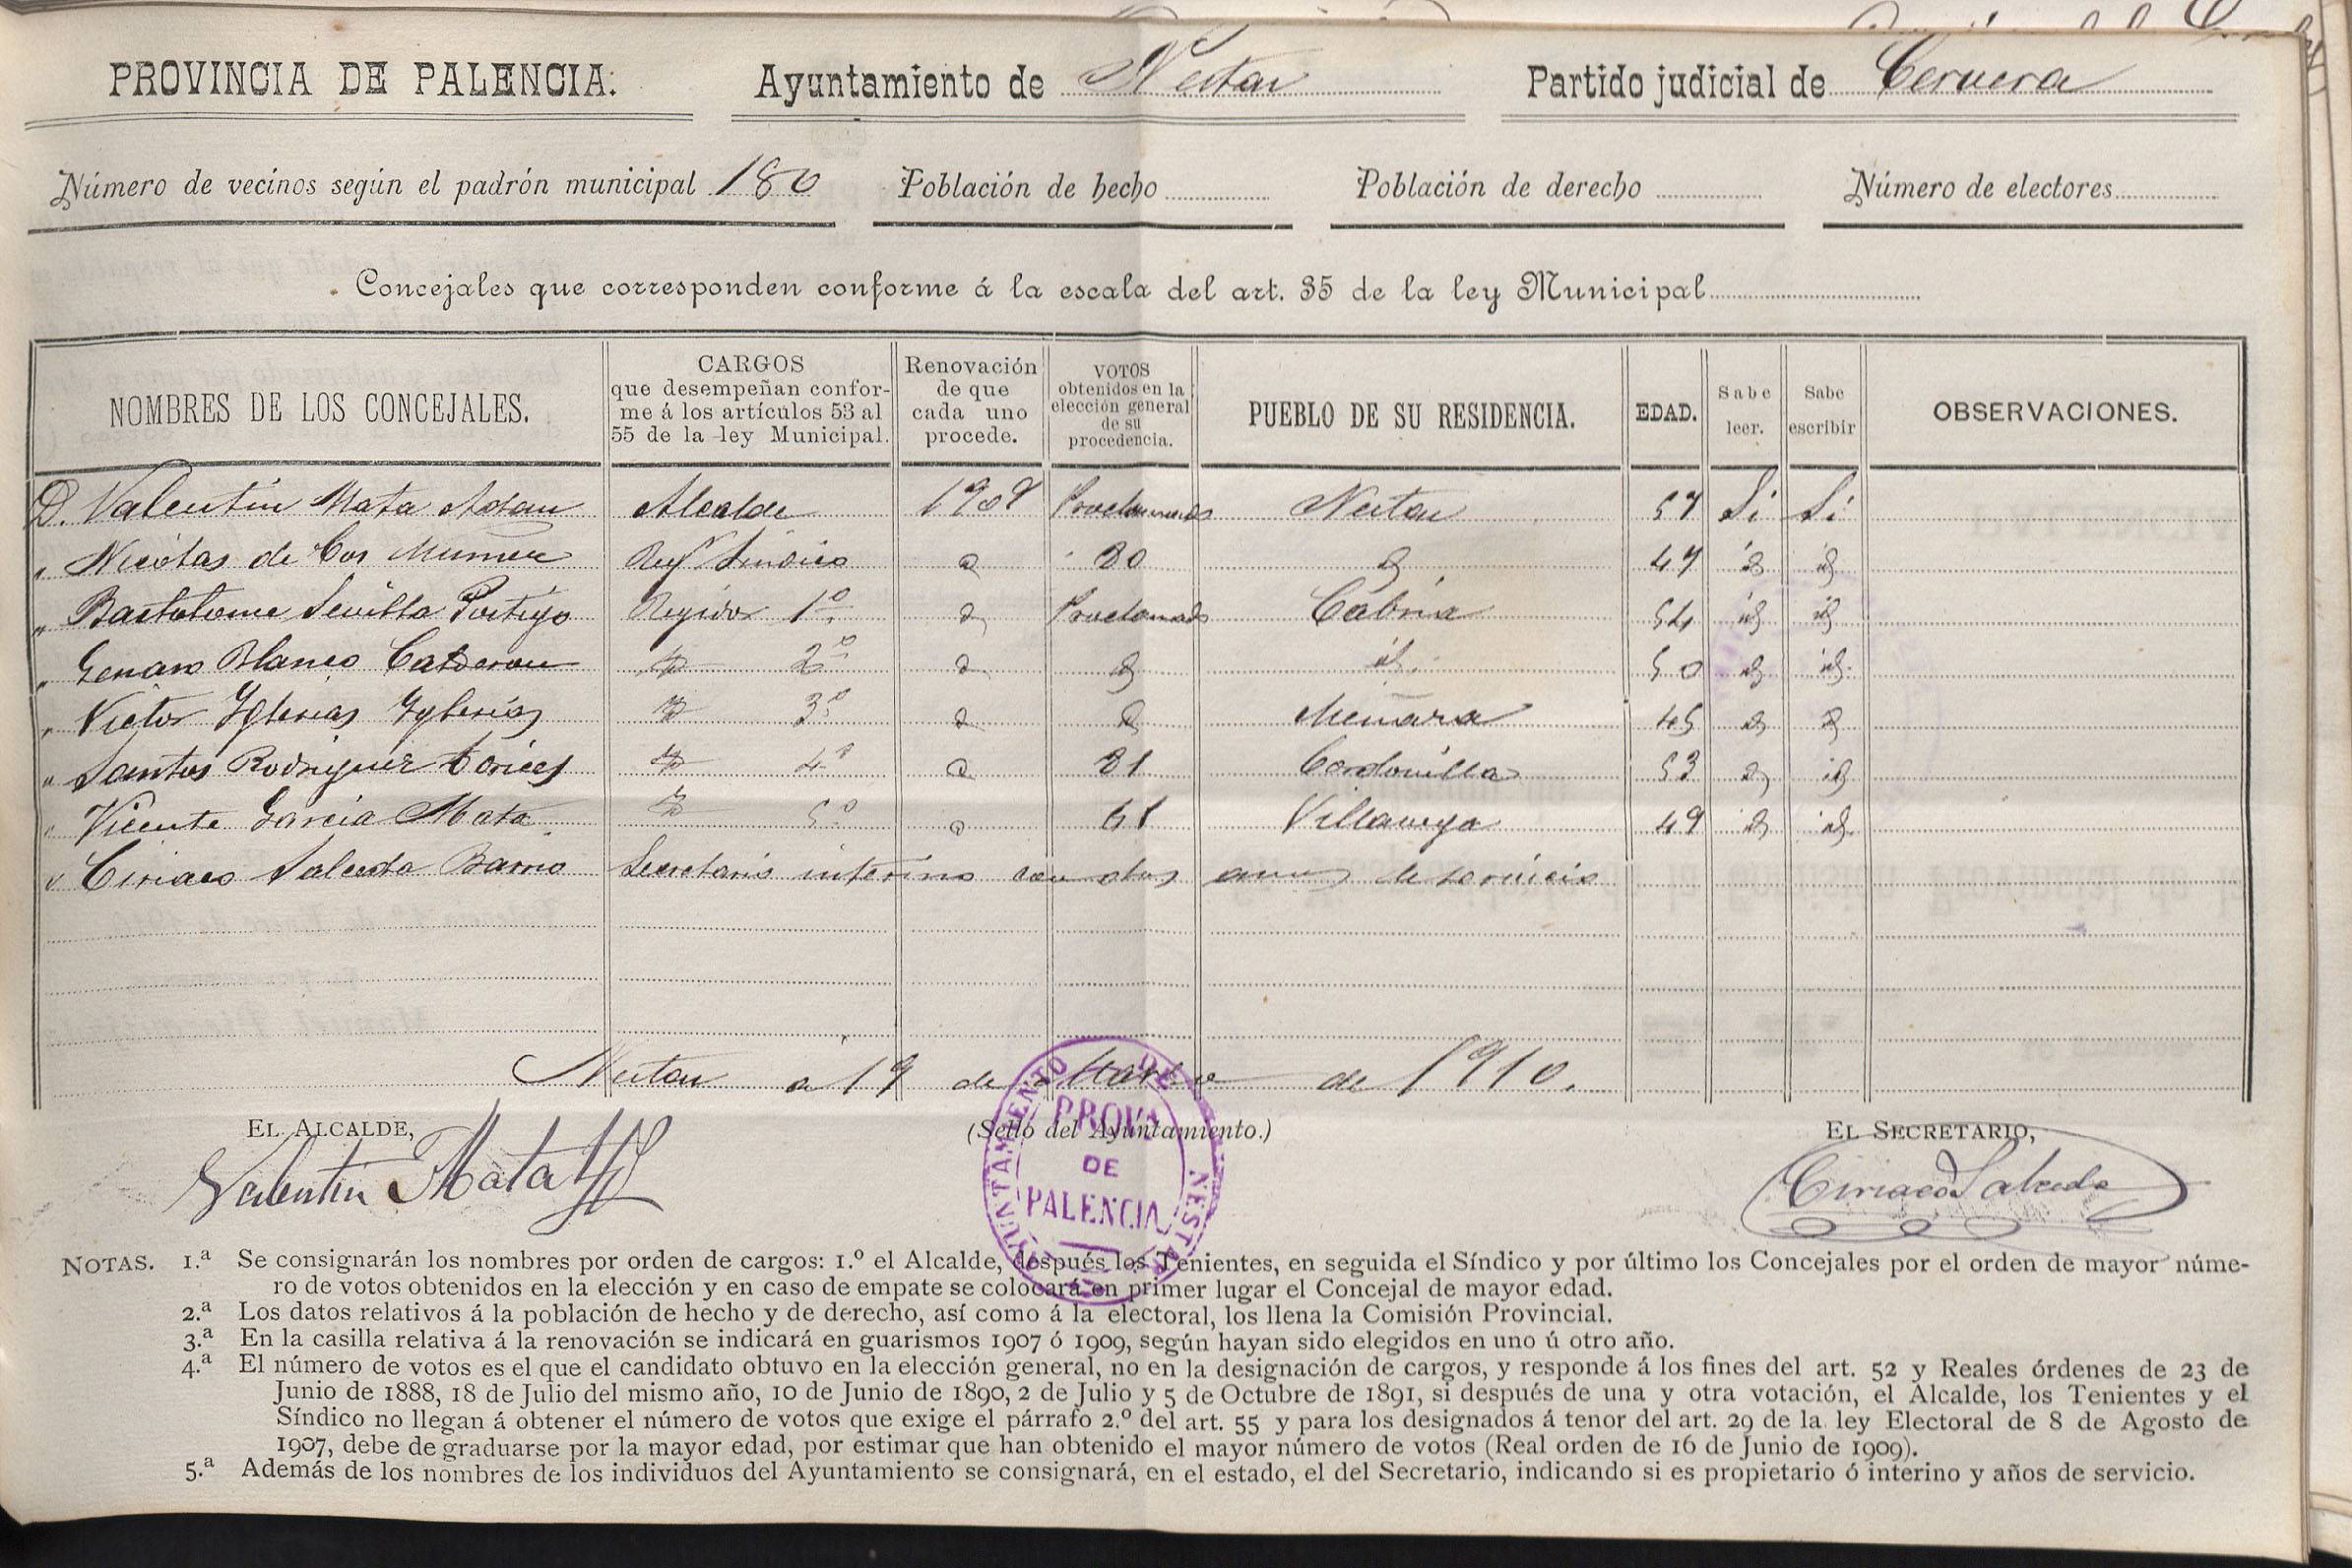 PROVINCIA DE PALENCIA. Ayuntamiento de Nestar Partido judicial de Cervera
Número de vecinos según el padrón municipal 180 Población de hecho Población de derecho Número de electores
Concejales que corresponden conforme á la escala del art. 35 de la ley Municipal
NOMBRES DE LOS CONCEJALES. CARGOS que desempeñan conforme á los artículos 53 al 55 de la ley Municipal. Renovación de que cada uno procede. VOTOS obtenidos en la elección general de su procedencia. PUEBLO DE SU RESIDENCIA. EDAD. Sabe leer. Sabe escribir OBSERVACIONES.
D. Valentin Mata Adan Alcalde 1909 Proclamado Nestar 57 Si Si
" Nicolas de Cos Muñez Regr Sindico id 80 id 47 id id
" Bartolome Sevilla Postigo Regidor 1º id Proclamado Cabria 54 id id
" Genaro Blanco Calderon id 2º id id id. 50 id id.
" Victor Yglesias Yglesias id 3º id id Menaza 45 id id
" Santos Rodriguez Torices id 4º id 81 Cordovilla 53 id id
" Vicente Garcia Mata id 5º id 61 Villavega 49 id id.
" Ciriaco Salceda Barrio Secretario interino con dos años de servicio
Nestar a 19 de Marzo de 1910.
EL ALCALDE, (Sello del Ayuntamiento.) EL SECRETARIO,
Valentin Mata Ciriaco Salceda
AYUNTAMIENTO DE NESTAR
PROVª
DE
PALENCIA
NOTAS. 1.ª Se consignarán los nombres por orden de cargos: 1.º el Alcalde, después los Tenientes, en seguida el Síndico y por último los Concejales por el orden de mayor núme-
ro de votos obtenidos en la elección y en caso de empate se colocará en primer lugar el Concejal de mayor edad.
2.ª Los datos relativos á la población de hecho y de derecho, así como á la electoral, los llena la Comisión Provincial.
3.ª En la casilla relativa á la renovación se indicará en guarismos 1907 ó 1909, según hayan sido elegidos en uno ú otro año.
4.ª El número de votos es el que el candidato obtuvo en la elección general, no en la designación de cargos, y responde á los fines del art. 52 y Reales órdenes de 23 de
Junio de 1888, 18 de Julio del mismo año, 10 de Junio de 1890, 2 de Julio y 5 de Octubre de 1891, si después de una y otra votación, el Alcalde, los Tenientes y el
Síndico no llegan á obtener el número de votos que exige el párrafo 2.º del art. 55 y para los designados á tenor del art. 29 de la ley Electoral de 8 de Agosto de
1907, debe de graduarse por la mayor edad, por estimar que han obtenido el mayor número de votos (Real orden de 16 de Junio de 1909).
5.ª Además de los nombres de los individuos del Ayuntamiento se consignará, en el estado, el del Secretario, indicando si es propietario ó interino y años de servicio.